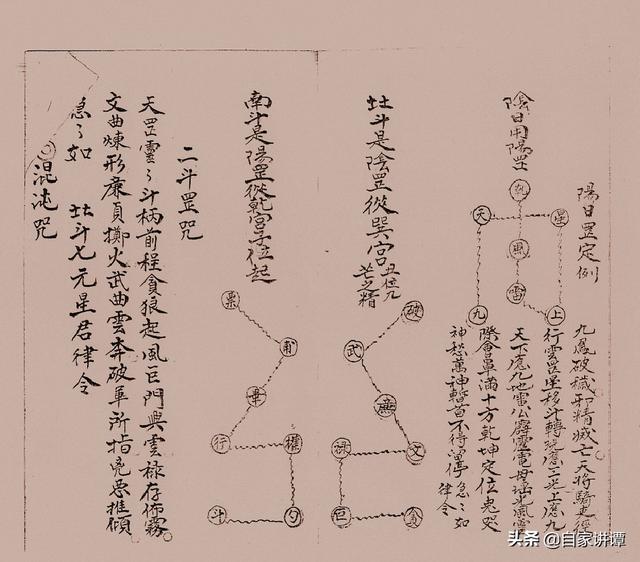 陽日罡定例
九鳳破穢邪精滅亡天將騎吏徑
行雲罡星移斗轉
上應九
天下應九地雷公霹靂電母
風雲
際會罩滿十方乾坤定位鬼哭
神愁萬神暫首不得留停急〻如
律令
陰日用陽罡
乳
天
星
鳳
雷
九
上
北斗是陰罡從巽宮
丑位九
芒之精
破
武
廉
文
祿
巨
貪
南斗是陽罡從乾宮子位起
行
權
斗
勺
二斗罡咒
天罡靈〻斗柄前程貪狼起風巨門興雲祿存佈霧
文曲煉形廉貞擲火武曲雲奔破軍所指兇惡推傾
急〻如 北斗七元星君律令
混沌咒
头条 @自家讲谭